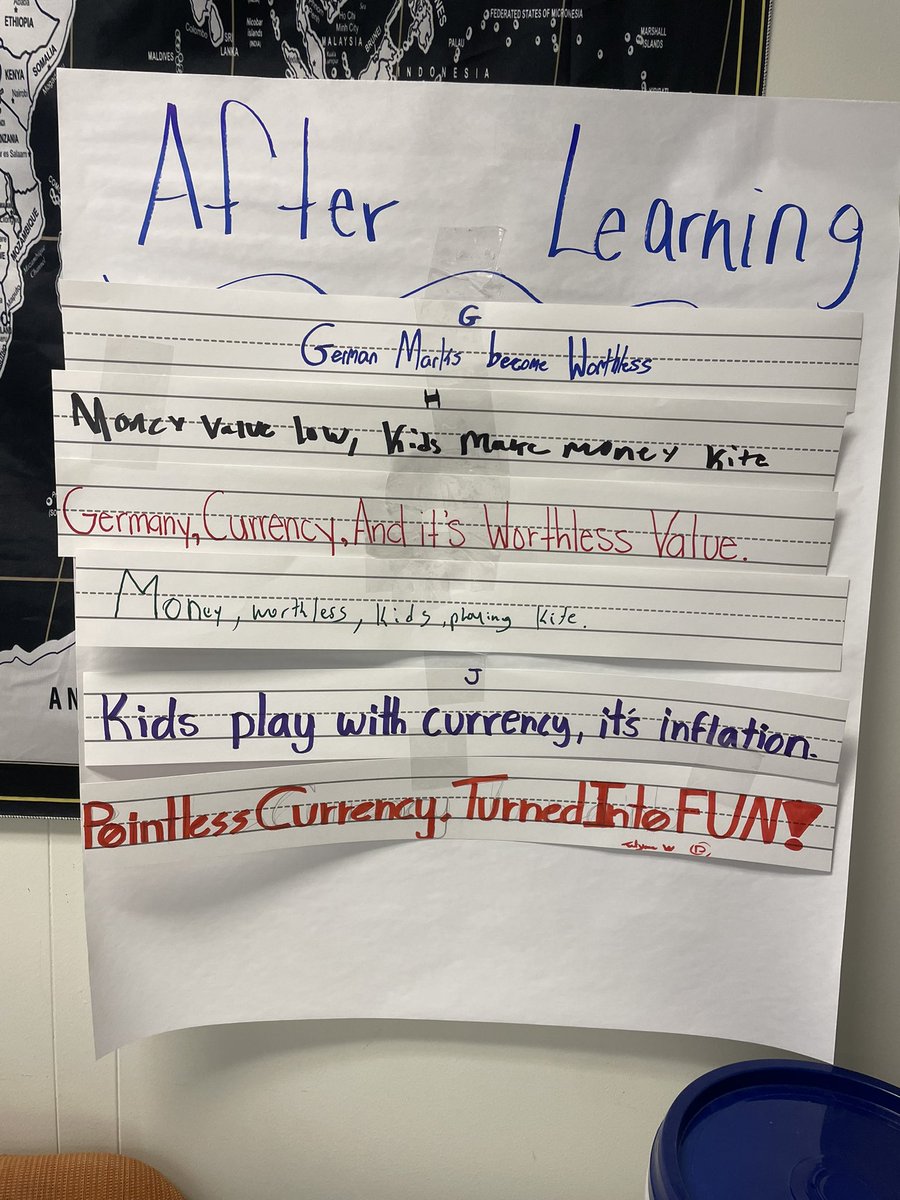 ETHIOPIA
SOMALIA
KENYA
Nairobi
Colombo
SRI
LANKA
MALDIVES
Ho Chi
Minh City
MALAYSIA
BRUNEI
INDONESIA
PALAU
FEDERATED STATES OF MICRONESIA
MARSHALL
ISLANDS
MOZAMBIQUE
After Learning
G
German Marks become Worthless
H
Money Value low, Kids Make money Kite
Germany, Currency, And it's Worthless Value.
Money, worthless, kids, playing kite.
J
Kids play with currency, it's inflation.
Pointless Currency. Turned Into FUN!
AN